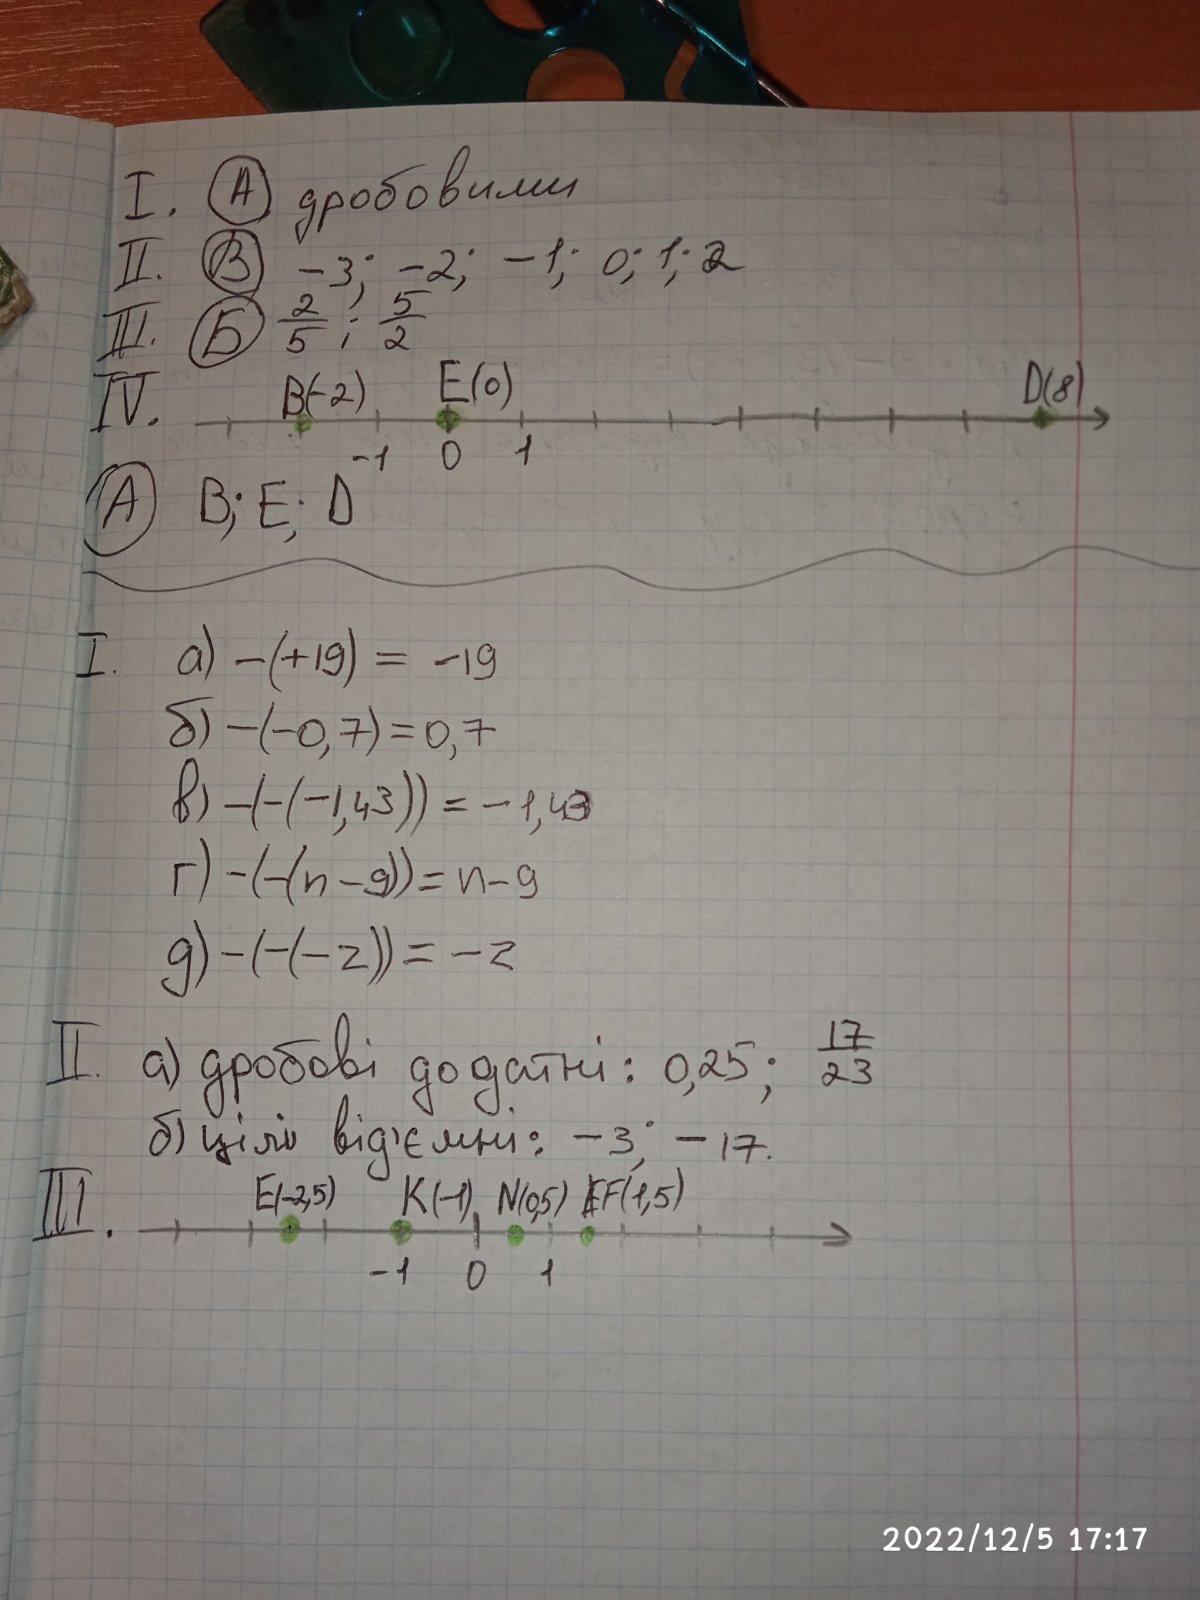 I. А дробовими
II. В -3; -2; -1; 0; 1; 2
III. Б 2/5 i 5/2
IV. B(-2) E(0) D(8)
-1 0 1
А B; E; D
I. а) -(+19) = -19
б) -(-0,7) = 0,7
в) -(-(-1,43)) = -1,43
г) -(-(n-9)) = n-9
д) -(-(-z)) = -z
II. а) дробові додатні: 0,25; 17/23
б) цілі від'ємні: -3; -17.
III. E(-2,5) K(-1) N(0,5) F(1,5)
-1 0 1
2022/12/5 17:17